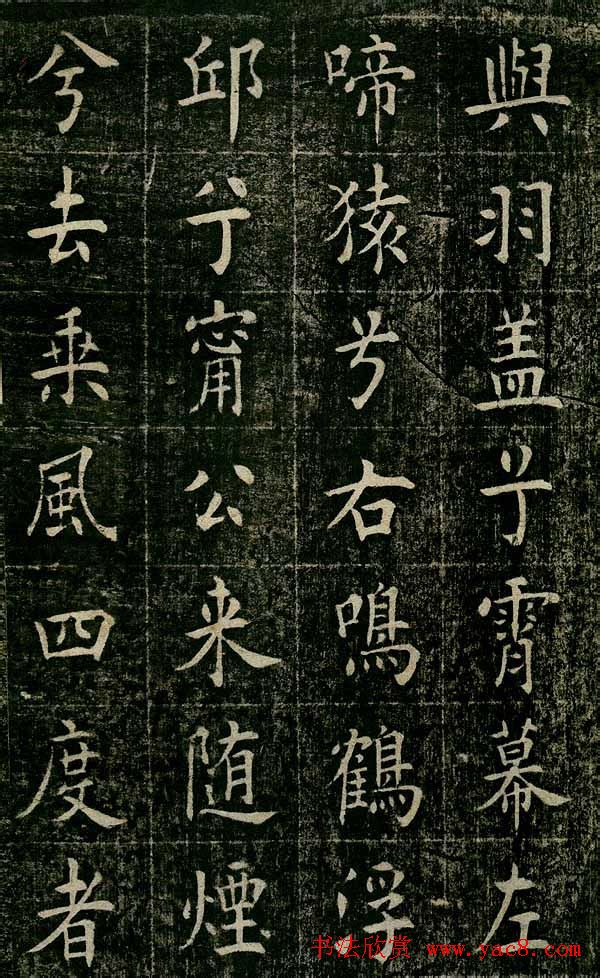 輿羽盖兮霄幕左
啼猿兮右鳴鶴浮
邱兮甯公来随煙
兮去乗風四度者
书法欣赏 www.yac8.com